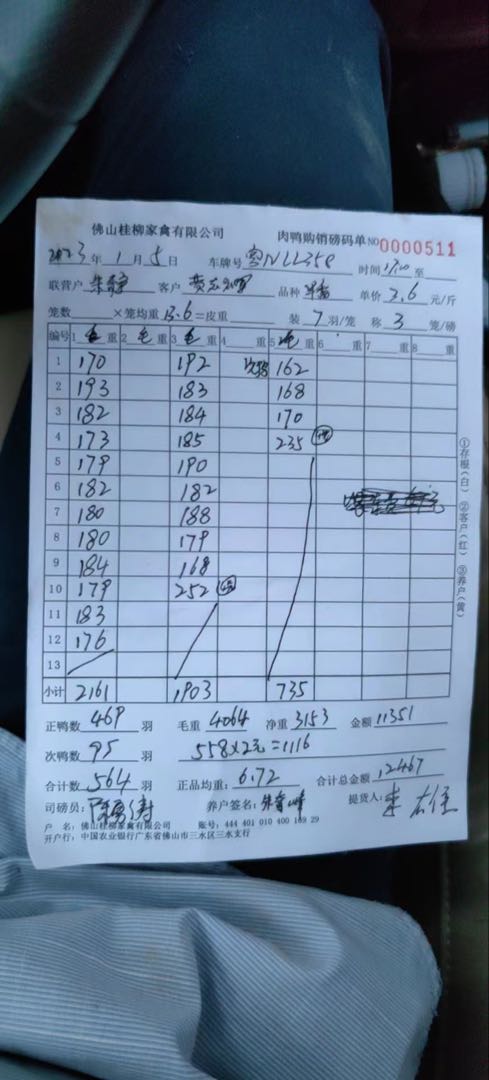 佛山桂柳家禽有限公司 肉鸭购销磅码单 NO0000511
2023年1月5日 车牌号 NLL358 时间 1700 至
联营户 客户 品种 单价 3.6 元/斤
笼数 ×笼均重 13.6 =皮重 装 7 羽/笼 称 3 笼/磅
编号 1 毛 重 2 毛 重 3 毛 重 4 重 5 毛 重 6 重 7 重 8 重
1 170 192 次鸭 162
2 193 183 168
3 182 184 170
4 173 185 235
5 179 190
6 182 182
7 180 188
8 180 179
9 184 168
10 179 252
11 183
12 176
13
小计 2161 1903 735
正鸭数 469 羽 毛重 4064 净重 3153 金额 11351
次鸭数 95 羽 558×2元=1116
合计数 564 羽 正品均重: 6.72 合计总金额 12467
司磅员: 养户签名: 提货人:
户 名: 佛山桂柳家禽有限公司 账号: 444 401 010 400 169 29
开户行: 中国农业银行广东省佛山市三水区三水支行
①存根(白) ②客户(红) ③养户(黄)